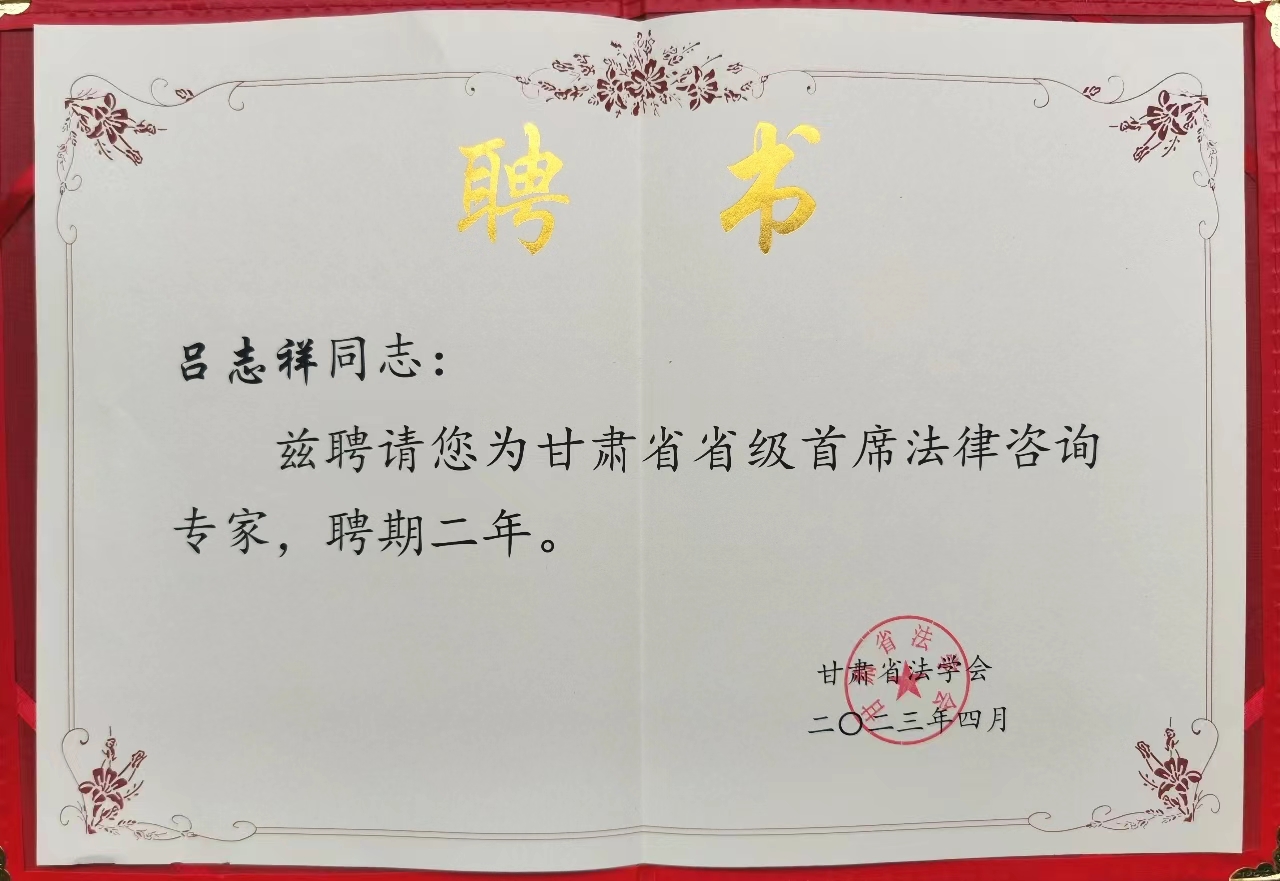 聘书
吕志祥同志：
兹聘请您为甘肃省省级首席法律咨询
专家，聘期二年。
甘肃省法学会
二〇二三年四月
甘肃省法学会